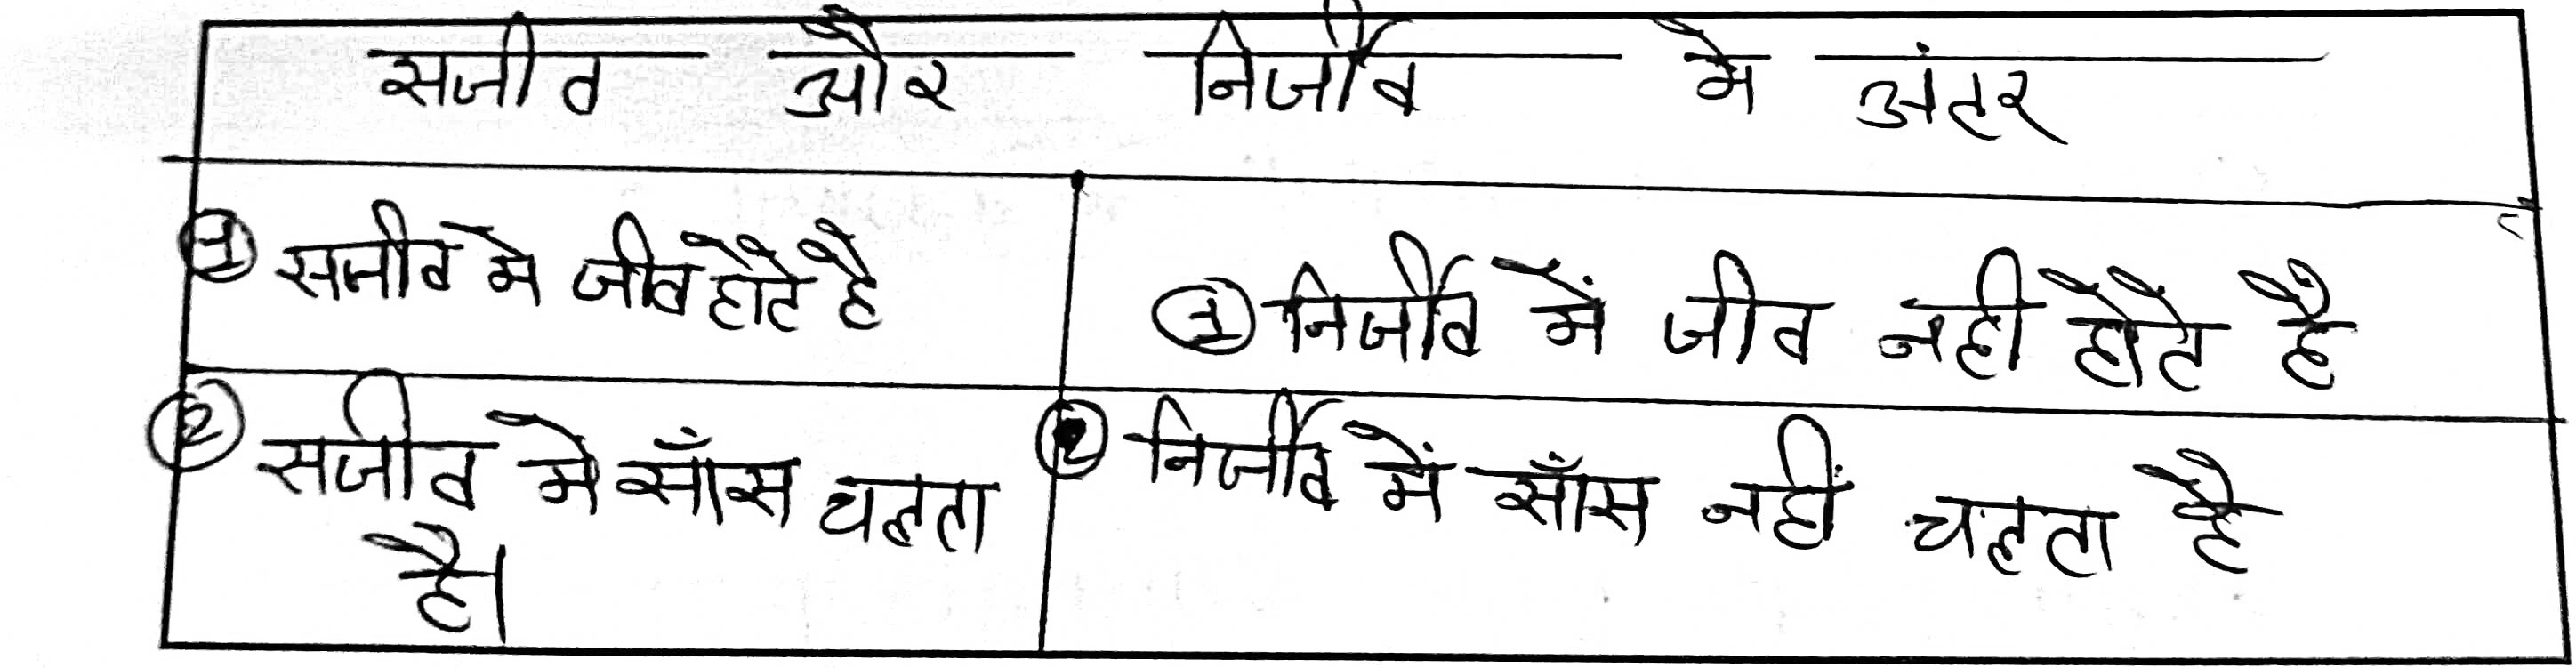 सजीव और निर्जीव मे अंतर
① सजीव मे जीव होते है
① निर्जीव में जीव नही होते है
② सजीव मे साँस चलता
है।
② निर्जीव में साँस नहीं चलता है